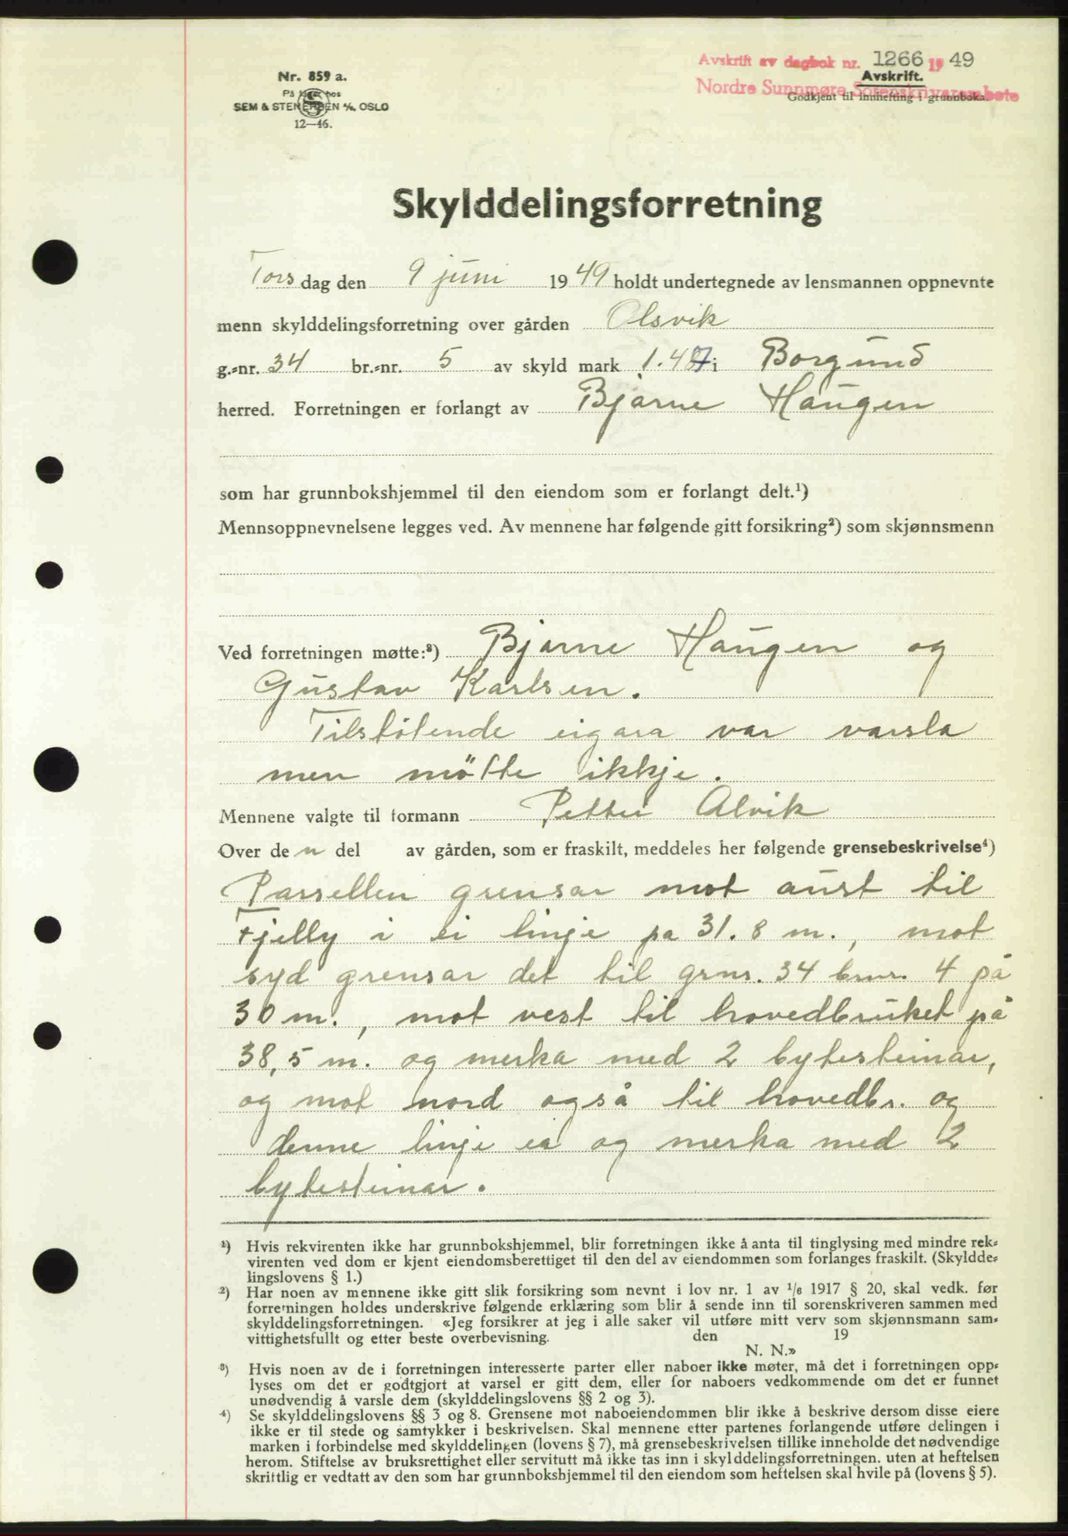 Avskrift av dagbok nr. 1266 1949
Avskrift.
Nordre Sunnmøre Sorenskriverembete
Godkjent til innhefting i grunnboka.
Nr. 859 a.
På lager hos
SEM & STENERSEN A/S, OSLO
12—46.
Skylddelingsforretning
Tors dag den 9 juni 1949 holdt undertegnede av lensmannen oppnevnte
menn skylddelingsforretning over gården Olsvik
g.-nr. 34 br.-nr. 5 av skyld mark 1.47 i Borgund
herred. Forretningen er forlangt av Bjarne Haugen
som har grunnbokshjemmel til den eiendom som er forlangt delt.¹)
Mennsoppnevnelsene legges ved. Av mennene har følgende gitt forsikring²) som skjønnsmenn
Ved forretningen møtte:³) Bjarne Haugen og
Gustav Karlsen.
Tilstøtende eigara var varsla
men møtte ikkje.
Mennene valgte til formann Petter Alvik
Over de n del av gården, som er fraskilt, meddeles her følgende grensebeskrivelse⁴)
Parsellen grensar mot aust til
Fjelly i ei linje på 31.8 m., mot
syd grensar det til grnr. 34 bnr. 4 på
30 m., mot vest til hovedbruket på
38,5 m. og merka med 2 bytesteinar,
og mot nord også til hovedbr. og
denne linje er og merka med 2
bytesteinar.
¹) Hvis rekvirenten ikke har grunnbokshjemmel, blir forretningen ikke å anta til tinglysing med mindre rek-
virenten ved dom er kjent eiendomsberettiget til den del av eiendommen som forlanges fraskilt. (Skyldde-
lingslovens § 1.)
²) Har noen av mennene ikke gitt slik forsikring som nevnt i lov nr. 1 av 1/6 1917 § 20, skal vedk. før
forretningen holdes underskrive følgende erklæring som blir å sende inn til sorenskriveren sammen med
skylddelingsforretningen. «Jeg forsikrer at jeg i alle saker vil utføre mitt verv som skjønnsmann sam-
vittighetsfullt og etter beste overbevisning. den 19
N. N.»
³) Hvis noen av de i forretningen interesserte parter eller naboer ikke møter, må det i forretningen opp-
lyses om det er godtgjort at varsel er gitt dem, eller for naboers vedkommende om det er funnet
unødvendig å varsle dem (skylddelingslovens §§ 2 og 3).
⁴) Se skylddelingslovens §§ 3 og 8. Grensene mot naboeiendommen blir ikke å beskrive dersom disse eiere
ikke er til stede og samtykker i beskrivelsen. Skal mennene etter partenes forlangende utføre delingen i
marken i forbindelse med skylddelingen (lovens § 7), må grensebeskrivelsen tillike inneholde det nødvendige
herom. Stiftelse av bruksrettighet eller servitutt må ikke tas inn i skylddelingsforretningen, uten at heftelsen
skriftlig er vedtatt av den som har grunnbokshjemmel til den eiendom som heftelsen skal hvile på (lovens § 5).